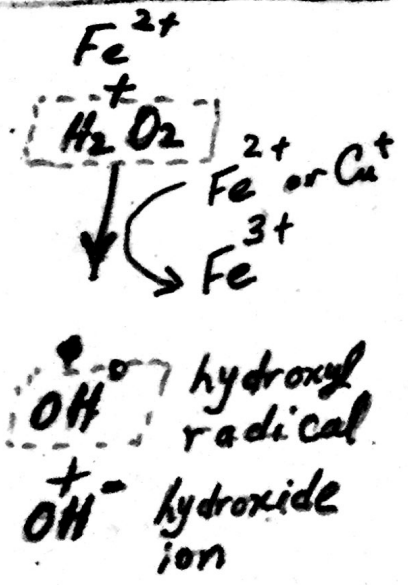 Fe²⁺
+
H₂O₂
Fe²⁺ or Cu⁺
Fe³⁺
OH° hydroxyl
radical
+
OH⁻ hydroxide
ion